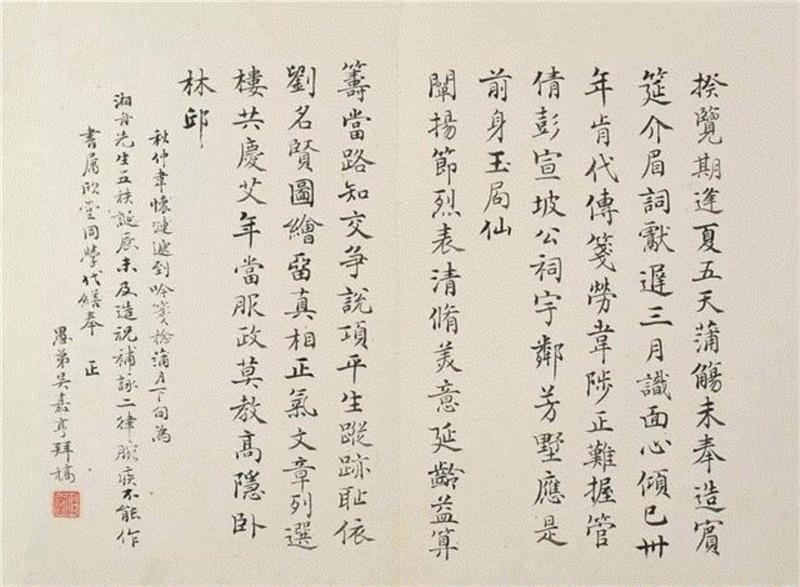 揆覽期逢夏五天蒲觴未奉造賓
筵介眉詞獻遲三月識面心傾已卅
年肯代傳箋勞韋陟正難握管
倩彭宣坡公祠宇鄰芳墅應是
前身玉局仙
闡揚節烈表清脩美意延齡益算
籌當路知交爭說項平生蹤跡恥依
劉名賢圖繪留真相正氣文章列選
樓共慶艾年當服政莫教高隱臥
林邱
秋仲韋懷漣遞到吟箋人於蒲月下旬為
湘舟先生五秩誕辰未及造祝補詠二律腕疾不能作
書屬欣堂同學代繕奉 正
愚弟吳嘉亨拜稿